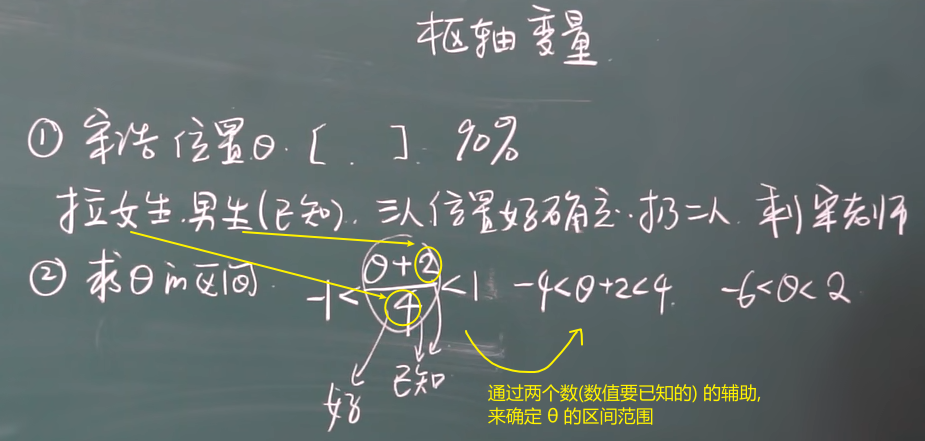 枢轴变量
① 宋浩位置θ. [ . ] 90%
拉女生.男生(已知). 三人位置好确定. 扔二人. 剩宋老师
② 求θ的区间. -1 < (θ+2)/4 < 1 -4<θ+2<4 -6<θ<2
好 已知
通过两个数(数值要已知的) 的辅助,
来确定 θ 的区间范围